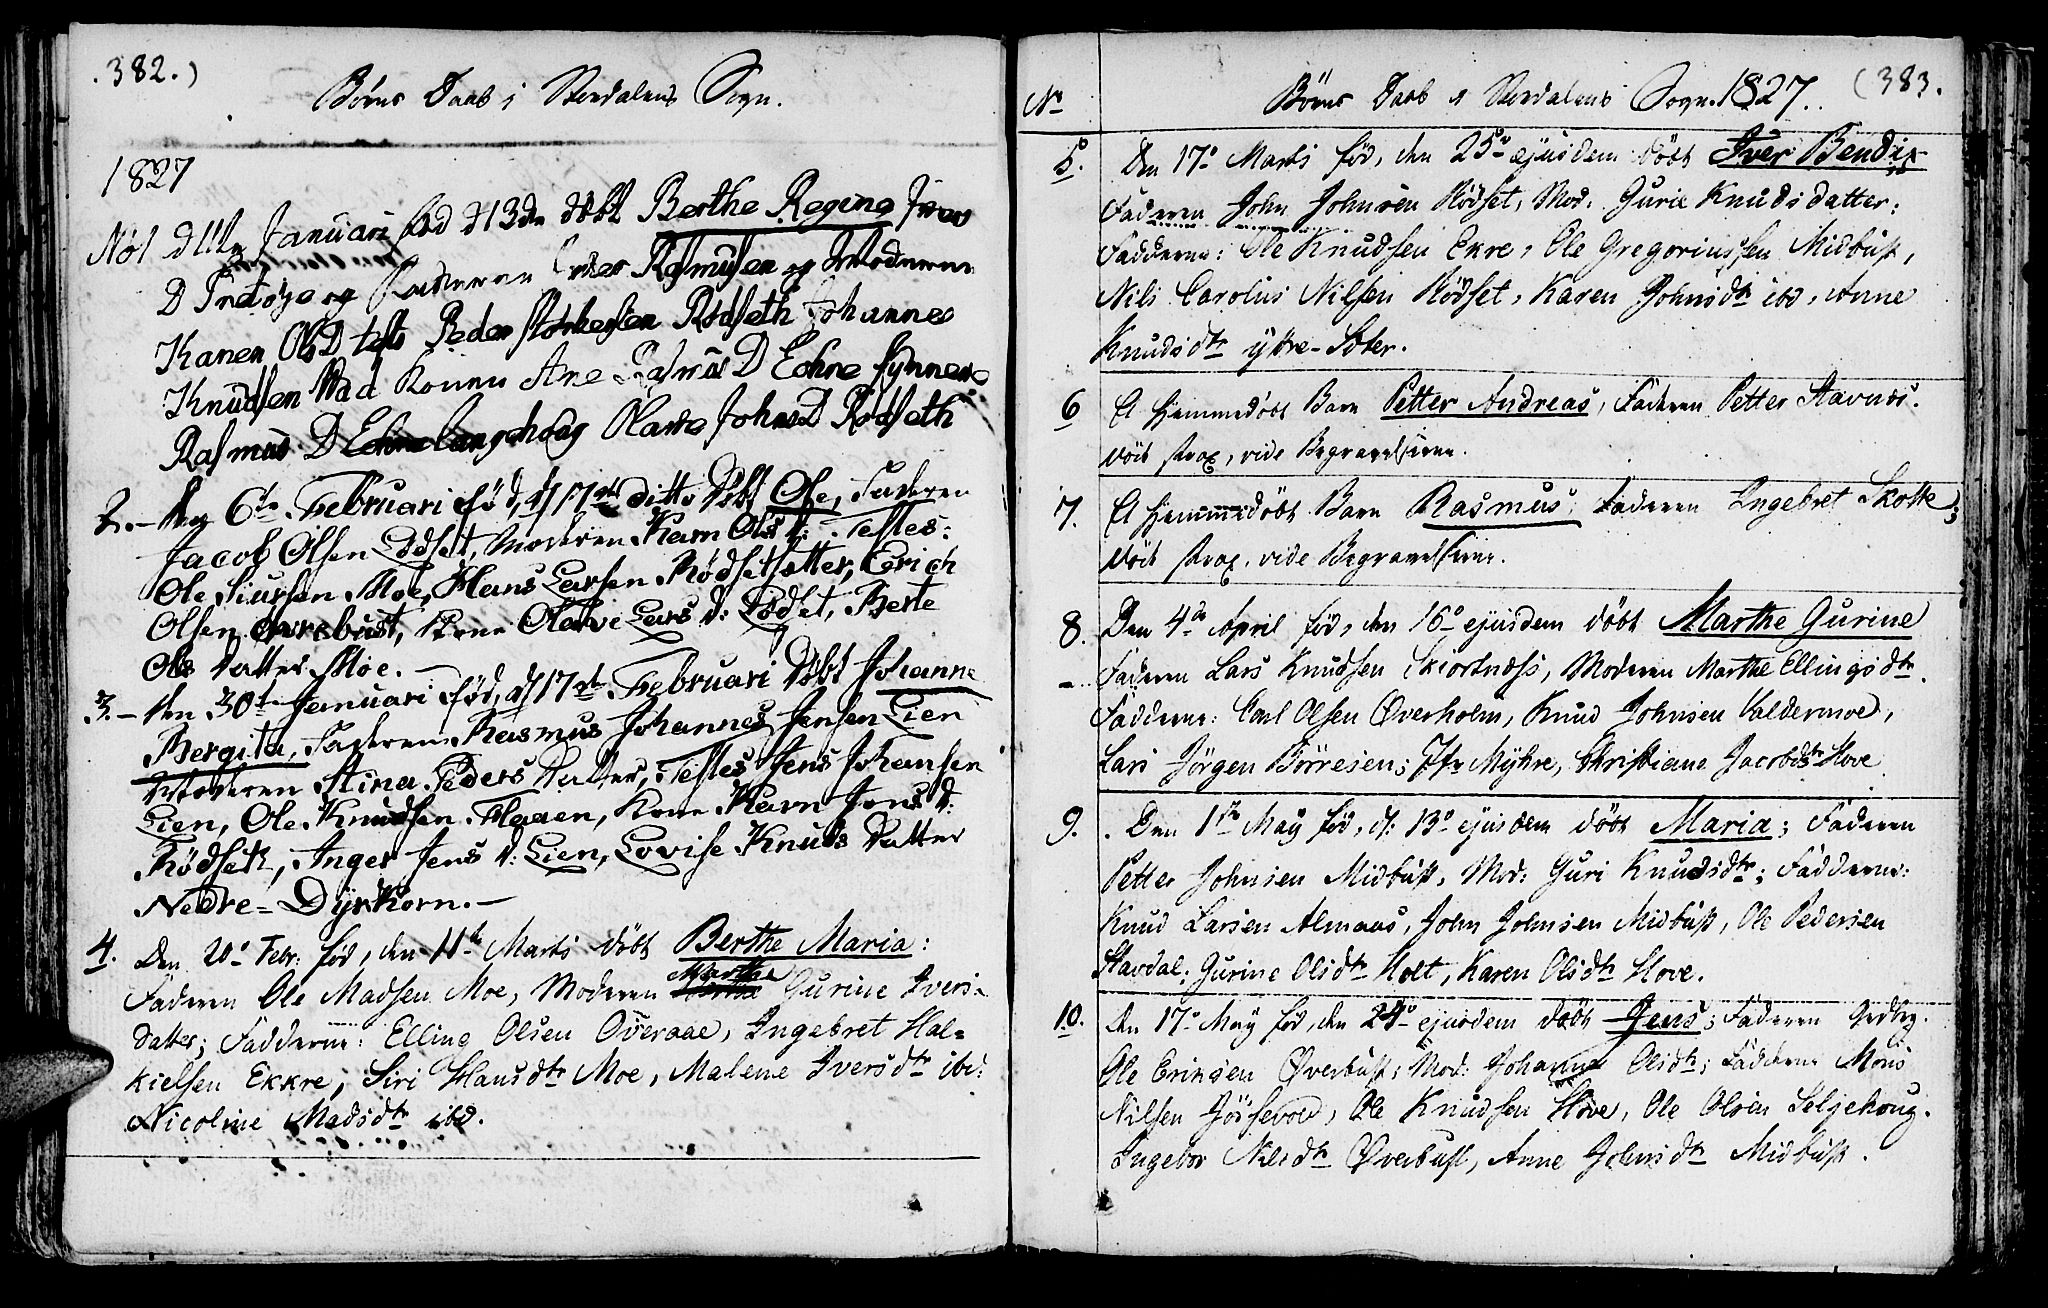 .382.)
Børns Daab i Stordalens Sogn.
1827
No 1 d 11te Januari fød d 13de døbt Berthe Regine
Faderen Iver Rasmusen og Moderen
Karen Ols D test Peder Rødseth Johannes
Knudsen Vad Konen Ane Rasmus D Eckre
Rasmus D Olave Johns D Rødseth
2. – Den 6te Februari fød, d/ 17de ditto Døbt Ole, Faderen
Jacob Olsen Lødset, Moderen Karn Ols d: Testes:
Ole Siursen Moe, Hans Larsen Rødsetsetter, Erich
Olsen Øvrebust, Kone Olave Lars d: Lødset, Berte
Ols Datter Moe. –
3. – Den 30te Januari fød, d/ 17de Februari Døbt Johanne
Bergita, Faderen Rasmus Johannes Jensen Lien
Moderen Stina Peders Datter, Testes Jens Johansen
Lien, Ole Knudsen Flaaen, Kone Karn Jons d:
Rødseth, Inger Jens d: Lien, Lovise Knuds Datter
Nedre = Dyrkorn. –
4. Den 20de Febr: fød, den 11te Marts døbt Berthe Maria:
Faderen Ole Madsen Moe, Moderen Marthe Gurine Ivers-
datter; Fadderne: Elling Olsen Overaae, Ingebret Hal=
kielsen Ekkre, Siri Hansdtr Moe, Malene Iversdtr ibd:
Nicoline Madsdtr ibd.
No
Børns Daab i Stordalens Sogn. 1827.
(383.
5. Den 17de Marts fød, den 25de ejusdem døbt Iver Bendix
Faderen John Johnsen Rødset, Mod: Gurie Knudsdatter:
Fadderne: Ole Knudsen Ekre, Ole Gregoriussen Midbust,
Nils Carolus Nilsen Rødset, Karen Johnsdtr ibd, Anne
Knudsdtr ytre-Sæter.
6 Et hjemmedøbt Barn Petter Andreas, Faderen Petter Stavnes.
döde strax, vide Begravelserne.
7. Et hjemmedøbt Barn Rasmus; Faderen Ingebret Skotte;
döde strax, vide Begravelserne.
8. Den 4de April fød, den 16de ejusdem døbt Marthe Gurine
– Faderen Lars Knudsen Skiortnæss, Moderen Marthe Ellingsdtr.
Fadderne: Carl Olsen Øverholm, Knud Johnsen Valdermoe,
Lars Jørgen Börresen; Jfr Myhre, Christiane Jacobsdtr Hove
9. Den 1ste May fød, d: 13de ejusdem døbt Maria; Faderen
Petter Johnsen Midbust, Mod: Guri Knudsdtr; Fadderne:
Knud Larsen Almaas, John Johnsen Midbust, Ole Pedersen
Stavdal; Gurine Olsdtr Holt, Karen Olsdtr Hove.
10. Den 17de May fød, den 24de ejusdem døbt Jens; Faderen Gdbr.
Ole Eriksen Øverbust; Mod: Johanne Olsdtr; Fadderne Mons
Nilsen Jössevold, Ole Knudsen Hove, Ole Olsen Seljehoug.
Ingebor Nilsdtr Øverbust, Anne Johnsdtr Midbust.